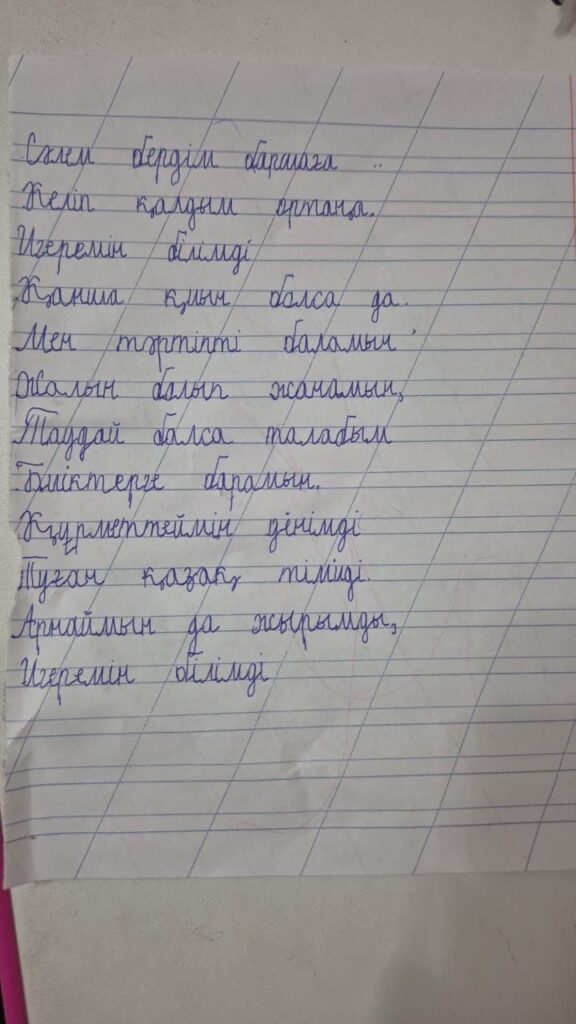 Сәлем бердім баршаға ..
Келіп қалдым ортаңа.
Игеремін білімді
Қанша қиын болса да.
Мен тәртіпті баламын
Жалын болып жанамын,
Таудай болса талабым
Биіктерге барамын.
Құрметтеймін дінімді
Туған қазақ тілімді.
Арнаймын да жырымды,
Игеремін білімді